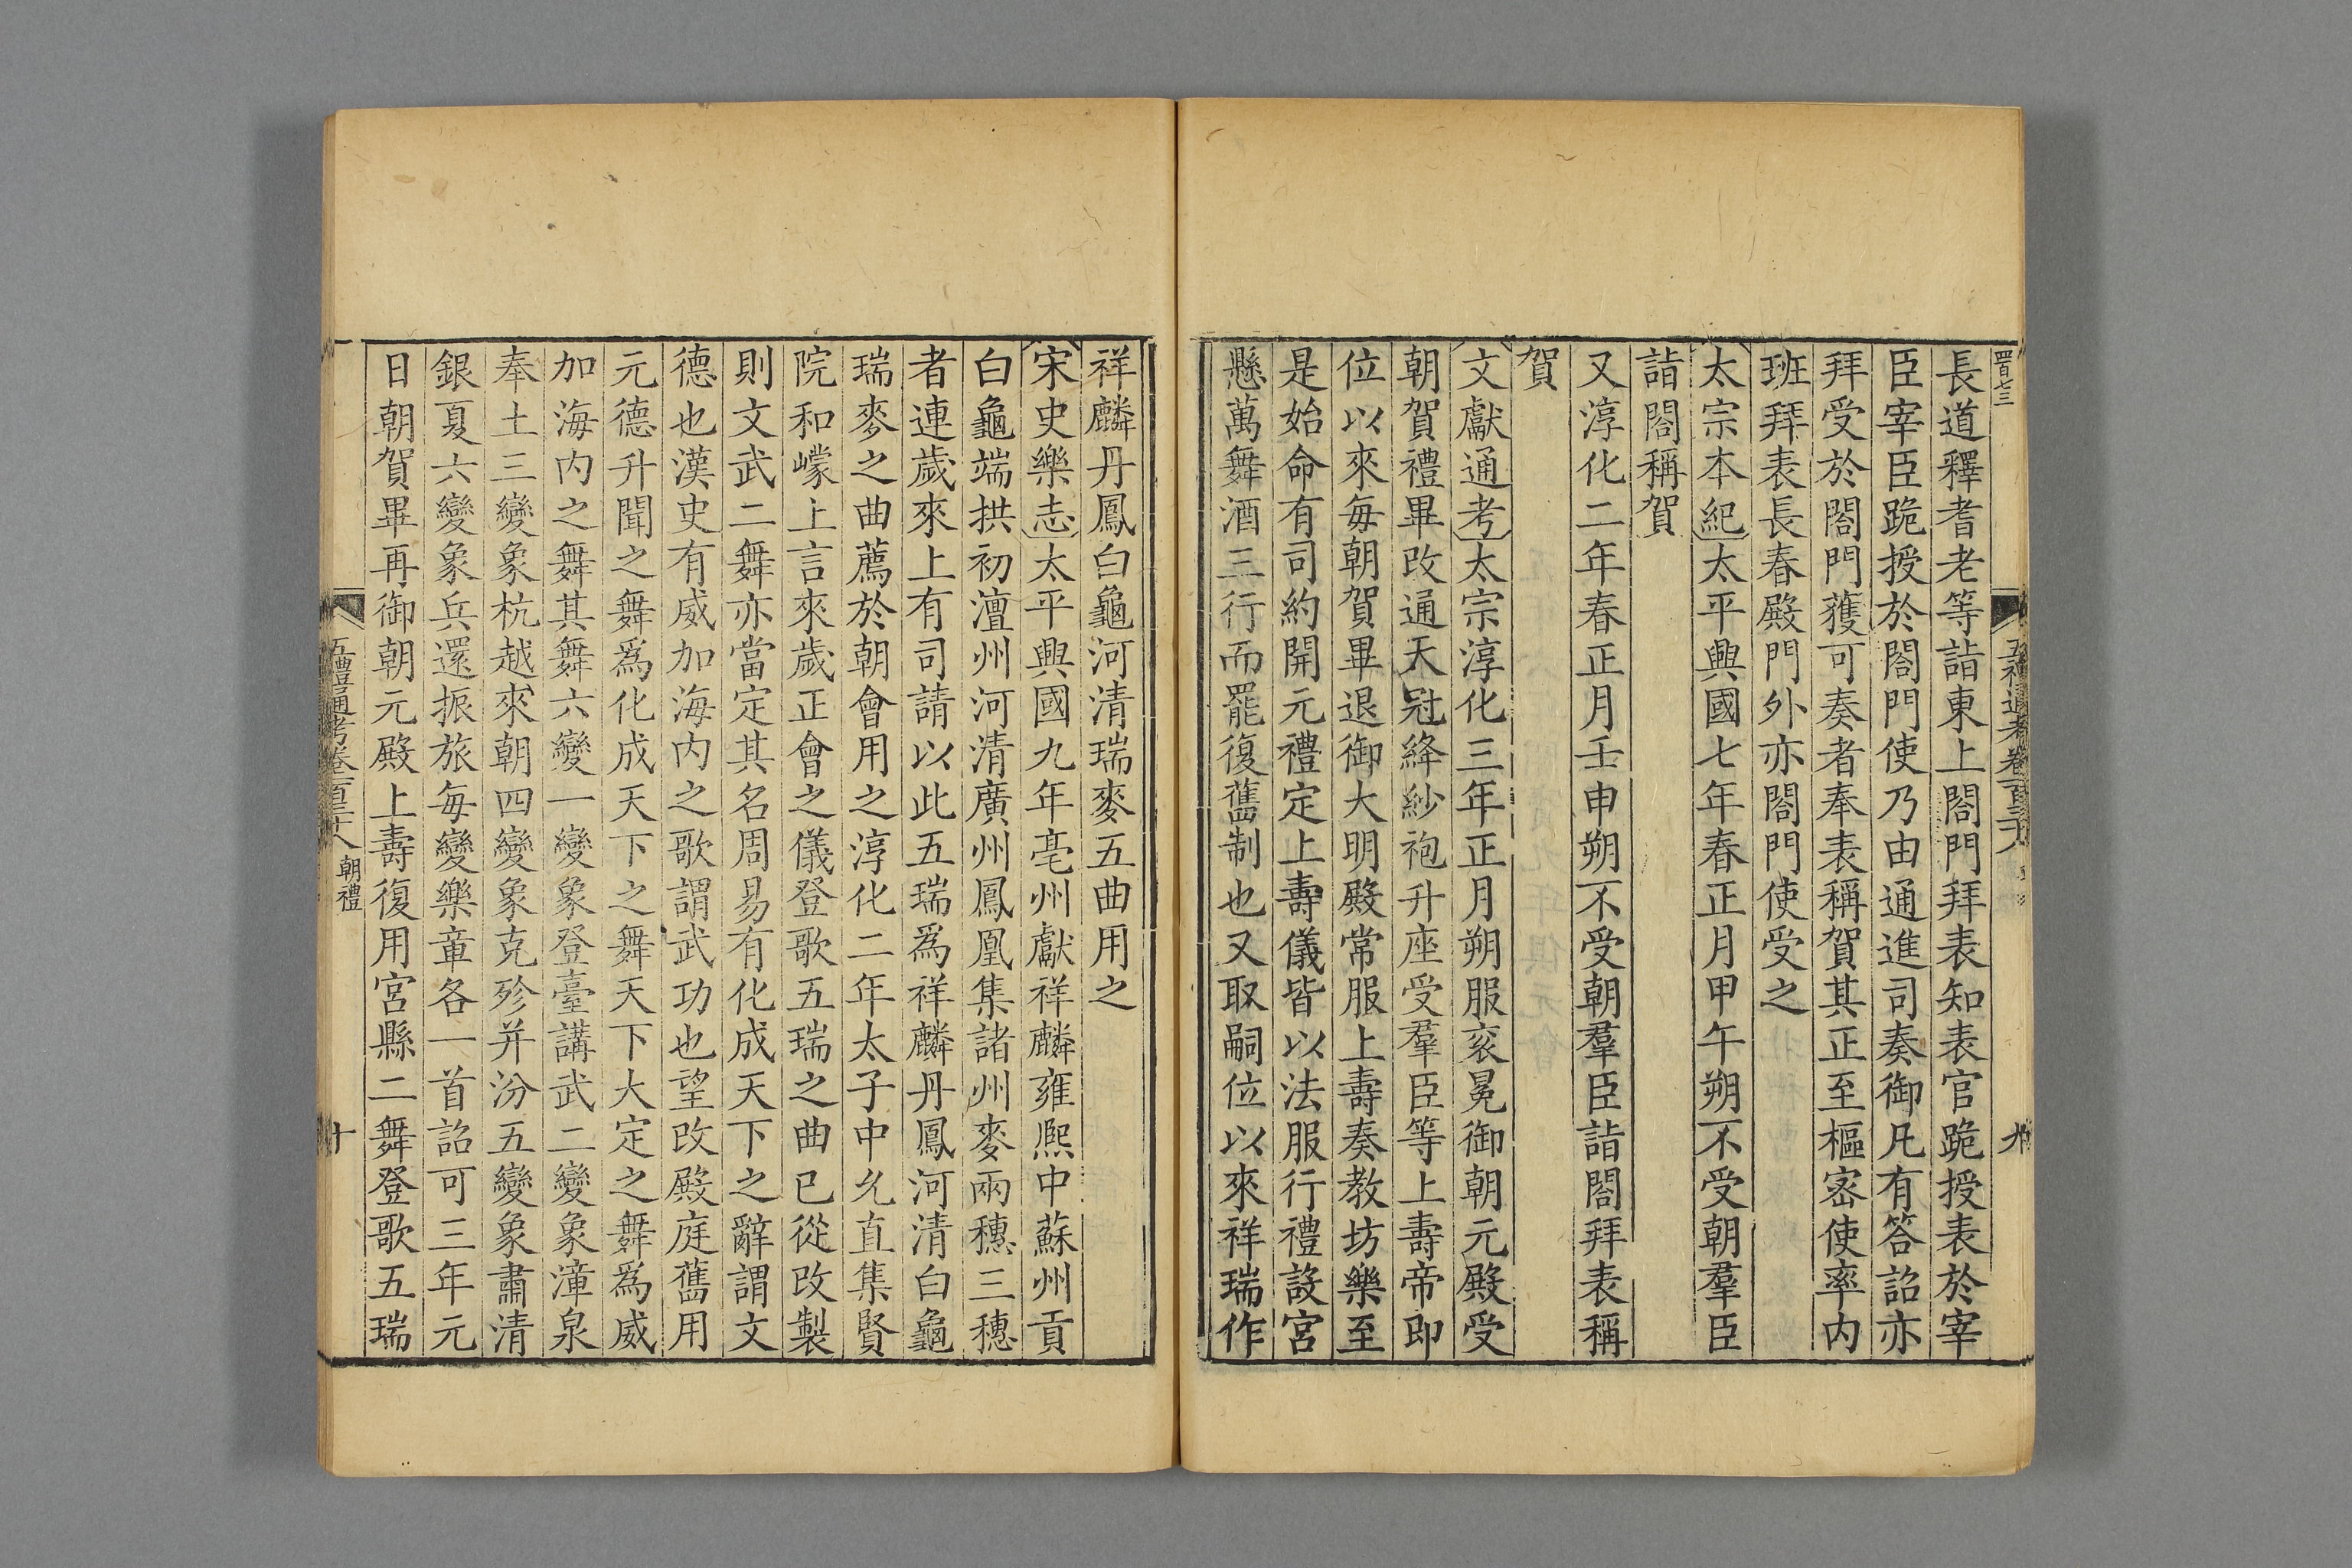 長道釋耆老等詣東上閤門拜表知表官跪授表於宰
臣宰臣跪授於閤門使乃由通進司奏御凡有答詔亦
拜受於閤門獲可奏者奉表稱賀其正至樞密使率内
班拜表長春殿門外亦閤門使受之
太宗本紀太平興國七年春正月甲午朔不受朝羣臣
詣閤稱賀
又淳化二年春正月壬申朔不受朝羣臣詣閤拜表稱
賀
文獻通考太宗淳化三年正月朔服衮冕御朝元殿受
朝賀禮畢改通天冠絳紗袍升座受羣臣等上壽帝即
位以來每朝賀畢退御大明殿常服上壽奏教坊樂至
是始命有司約開元禮定上壽儀皆以法服行禮設宮
懸萬舞酒三行而罷復舊制也又取嗣位以來祥瑞作
祥麟丹鳳白龜河清瑞麥五曲用之
宋史樂志太平興國九年亳州獻祥麟雍熙中蘇州貢
白龜端拱初澶州河清廣州鳳凰集諸州麥兩穗三穗
者連歲來上有司請以此五瑞爲祥麟丹鳳河清白龜
瑞麥之曲薦於朝會用之淳化二年太子中允直集賢
院和㠓上言來歲正會之儀登歌五瑞之曲已從改製
則文武二舞亦當定其名周易有化成天下之辭謂文
德也漢史有威加海内之歌謂武功也望改殿庭舊用
元德升聞之舞爲化成天下之舞天下大定之舞爲威
加海内之舞其舞六變一變象登臺講武二變象漳泉
奉土三變象杭越來朝四變象克殄并汾五變象肅清
銀夏六變象兵還振旅每變樂章各一首詔可三年元
日朝賀畢再御朝元殿上壽復用宮縣二舞登歌五瑞
五禮通考卷一百三十八 朝禮 十